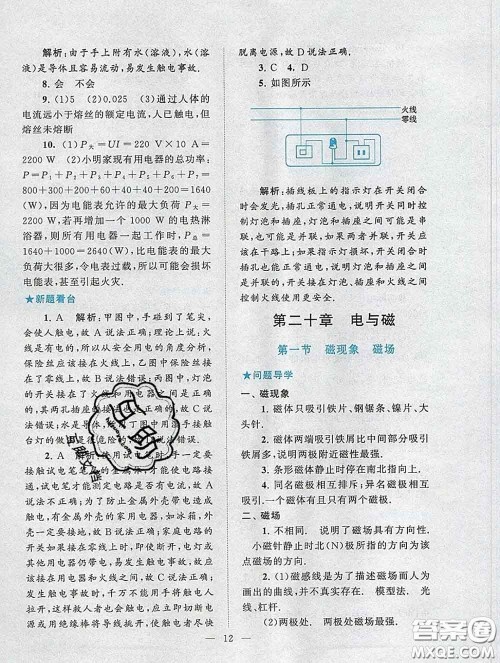 解析:由于手上附有水(溶液),水(溶
液)是导体且容易流动,易发生触电事故.
8. 会　不会
9. (1)5　(2)0.025　(3)通过人体的
电流远小于熔丝的额定电流,人已触电,但
熔丝未熔断
10. (1)P大=UI=220 V×10 A=
2200 W　(2)小明家现有用电器的总功率:
P=P1+P2+P3+P4+P5+P6+P7=
800+300+200+60+40+200+40=1640
(W),因为电能表允许的最大负荷为P大=
2200 W,如果再增加一个1000 W的电热淋
浴器,则所有用电器一起工作时,P总=
1640+1000=2640(W),比电能表的最大
负荷大很多,令电表过载,可能会损坏
电能表,甚至引起火灾.
★新题看台
1. A　解析:甲图中,手碰到了笔尖,
会使人触电,故A说法正确;理论上说,火
线是有电的,所以从安全用电的角度分析,
保险丝应该接在火线上,乙图中保险丝接
在了零线上,故B说法错误;丙图中,灯泡
的开关接在火线和用电器之间是正确的,
其两孔插座应并联接入电路,故C说法错
误;水是导体,丁图中用湿手接触
台灯的做法是错误的,故D说法错误.
2. A　解析:使用试电笔时,手一定要
接触试电笔尾部的金属体,才能构成电路通
路,试电笔才能测定电路是否有电,故A
说法不正确;为了防止金属外壳带电造成
触电,有金属外壳的家用电器,如冰箱,外
壳一定要接地,故B说法正确;家庭电路的
开关如果接在零线上,即使断开开关,灯或
其他用电器仍带电,易引发触电事故,故C
说法正确;有人触电时,不能用手将电人
拉开,这样会使人触电,应立即切断电源,
或用绝缘棒将导线挑开,使触电者尽快
脱离电源,故D说法正确.
3. C　4. D
5. 如图所示
火线
零线
解析:插线板上的指示灯在开关闭合
时会发光,插孔正常通电,说明开关同时控
制灯泡和插座,灯泡和插座之间可能是串
联,也可能是并联,如果是并联,开关应该
在干路上;如果指示灯损坏,开关闭合时
插孔也能正常通电,说明灯泡和插座之间
是并联的,开关接在灯泡、插座与火线之间
控制火线使用更安全.
第二十章　电与磁
第一节　磁现象　磁场
★问题导学
一、磁现象
1. 磁体只吸引铁片、钢锯条、镍片、大
头针.
2. 磁体两端吸引铁屑比中间部分吸引
铁屑多,说明两极附近磁性最强.
3. 条形磁体静止时停在南北指向上.
4. 同名磁极相互排斥,异名磁极相互
吸引.每个磁体只有两个磁极.
二、磁场
1. 不相同.　说明了磁场具有方向性.
小磁针静止时北(N)极所指的方向为该点
的磁场方向.
2. (1)磁感线是为了描述磁场而人为
画出的曲线,并不真实存在.　模型法.　光
线,杠杆.
(2)两极处.　两极处磁场最强.
12
答案圈
MXQE.COM